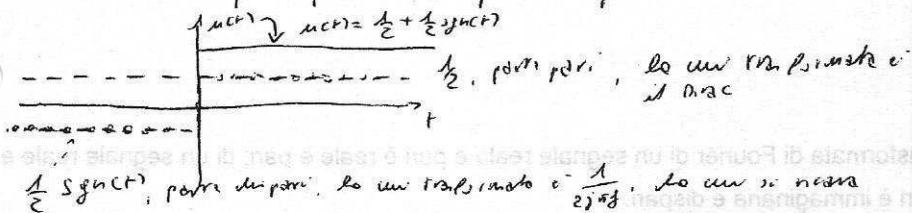 u(t)   u(t) = 1/2 + 1/2 sgn(t)
1/2, parte pari, la cui trasformata è
il Dirac
t
1/2 sgn(t), parte dispari, la cui trasformata è 1/(2jπf), da cui si ricava